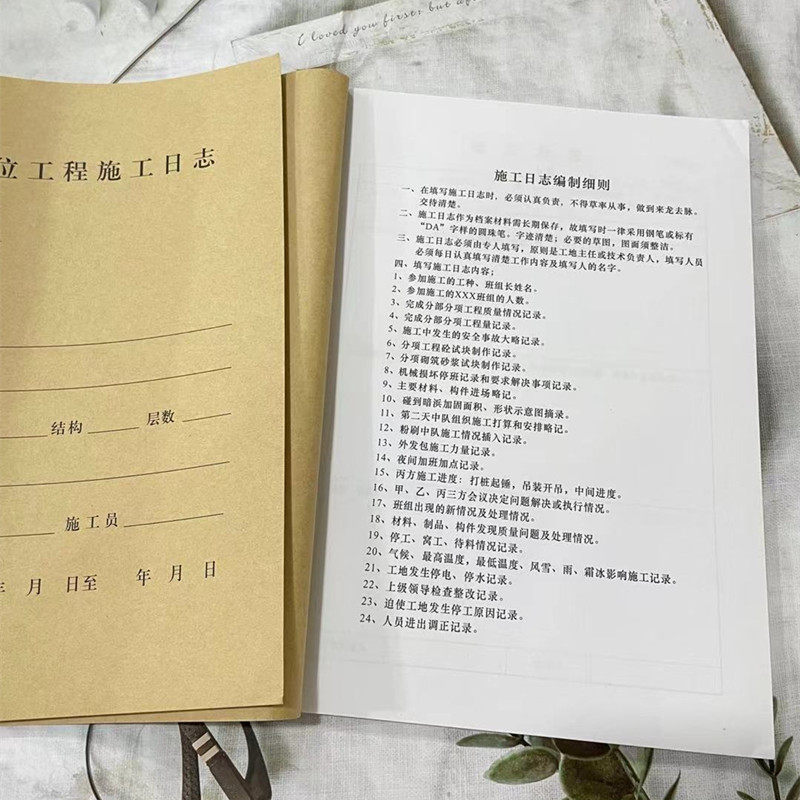 I loved you first; but
立工程施工日志
结构 层数
施工员
月 日至 年 月 日
施工日志编制细则
一、在填写施工日志时，必须认真负责，不得草率从事，做到来龙去脉。
交待清楚。
二、施工日志作为档案材料需长期保存，故填写时一律采用钢笔或标有
“DA”字样的圆珠笔。字迹清楚；必要的草图，图面须整洁。
三、施工日志必须由专人填写，原则是工地主任或技术负责人，填写人员
必须每日认真填写清楚工作内容及填写人的名字。
四、填写施工日志内容；
1、参加施工的工种、班组长姓名。
2、参加施工的XXX班组的人数。
3、完成分部分项工程质量情况记录。
4、完成分部分项工程量记录。
5、施工中发生的安全事故大略记录。
6、分项工程砼试块制作记录。
7、分项砌筑砂浆试块制作记录。
8、机械损坏停班记录和要求解决事项记录。
9、主要材料、构件进场略记。
10、碰到暗浜加固面积、形状示意图摘录。
11、第二天中队组织施工打算和安排略记。
12、粉刷中队施工情况插入记录。
13、外发包施工力量记录。
14、夜间加班加点记录。
15、丙方施工进度：打桩起锤，吊装开吊，中间进度。
16、甲、乙、丙三方会议决定问题解决或执行情况。
17、班组出现的新情况及处理情况。
18、材料、制品、构件发现质量问题及处理情况。
19、停工、窝工、待料情况记录。
20、气候、最高温度，最低温度、风雪、雨、霜冰影响施工记录。
21、工地发生停电、停水记录。
22、上级领导检查整改记录。
23、迫使工地发生停工原因记录。
24、人员进出调正记录。